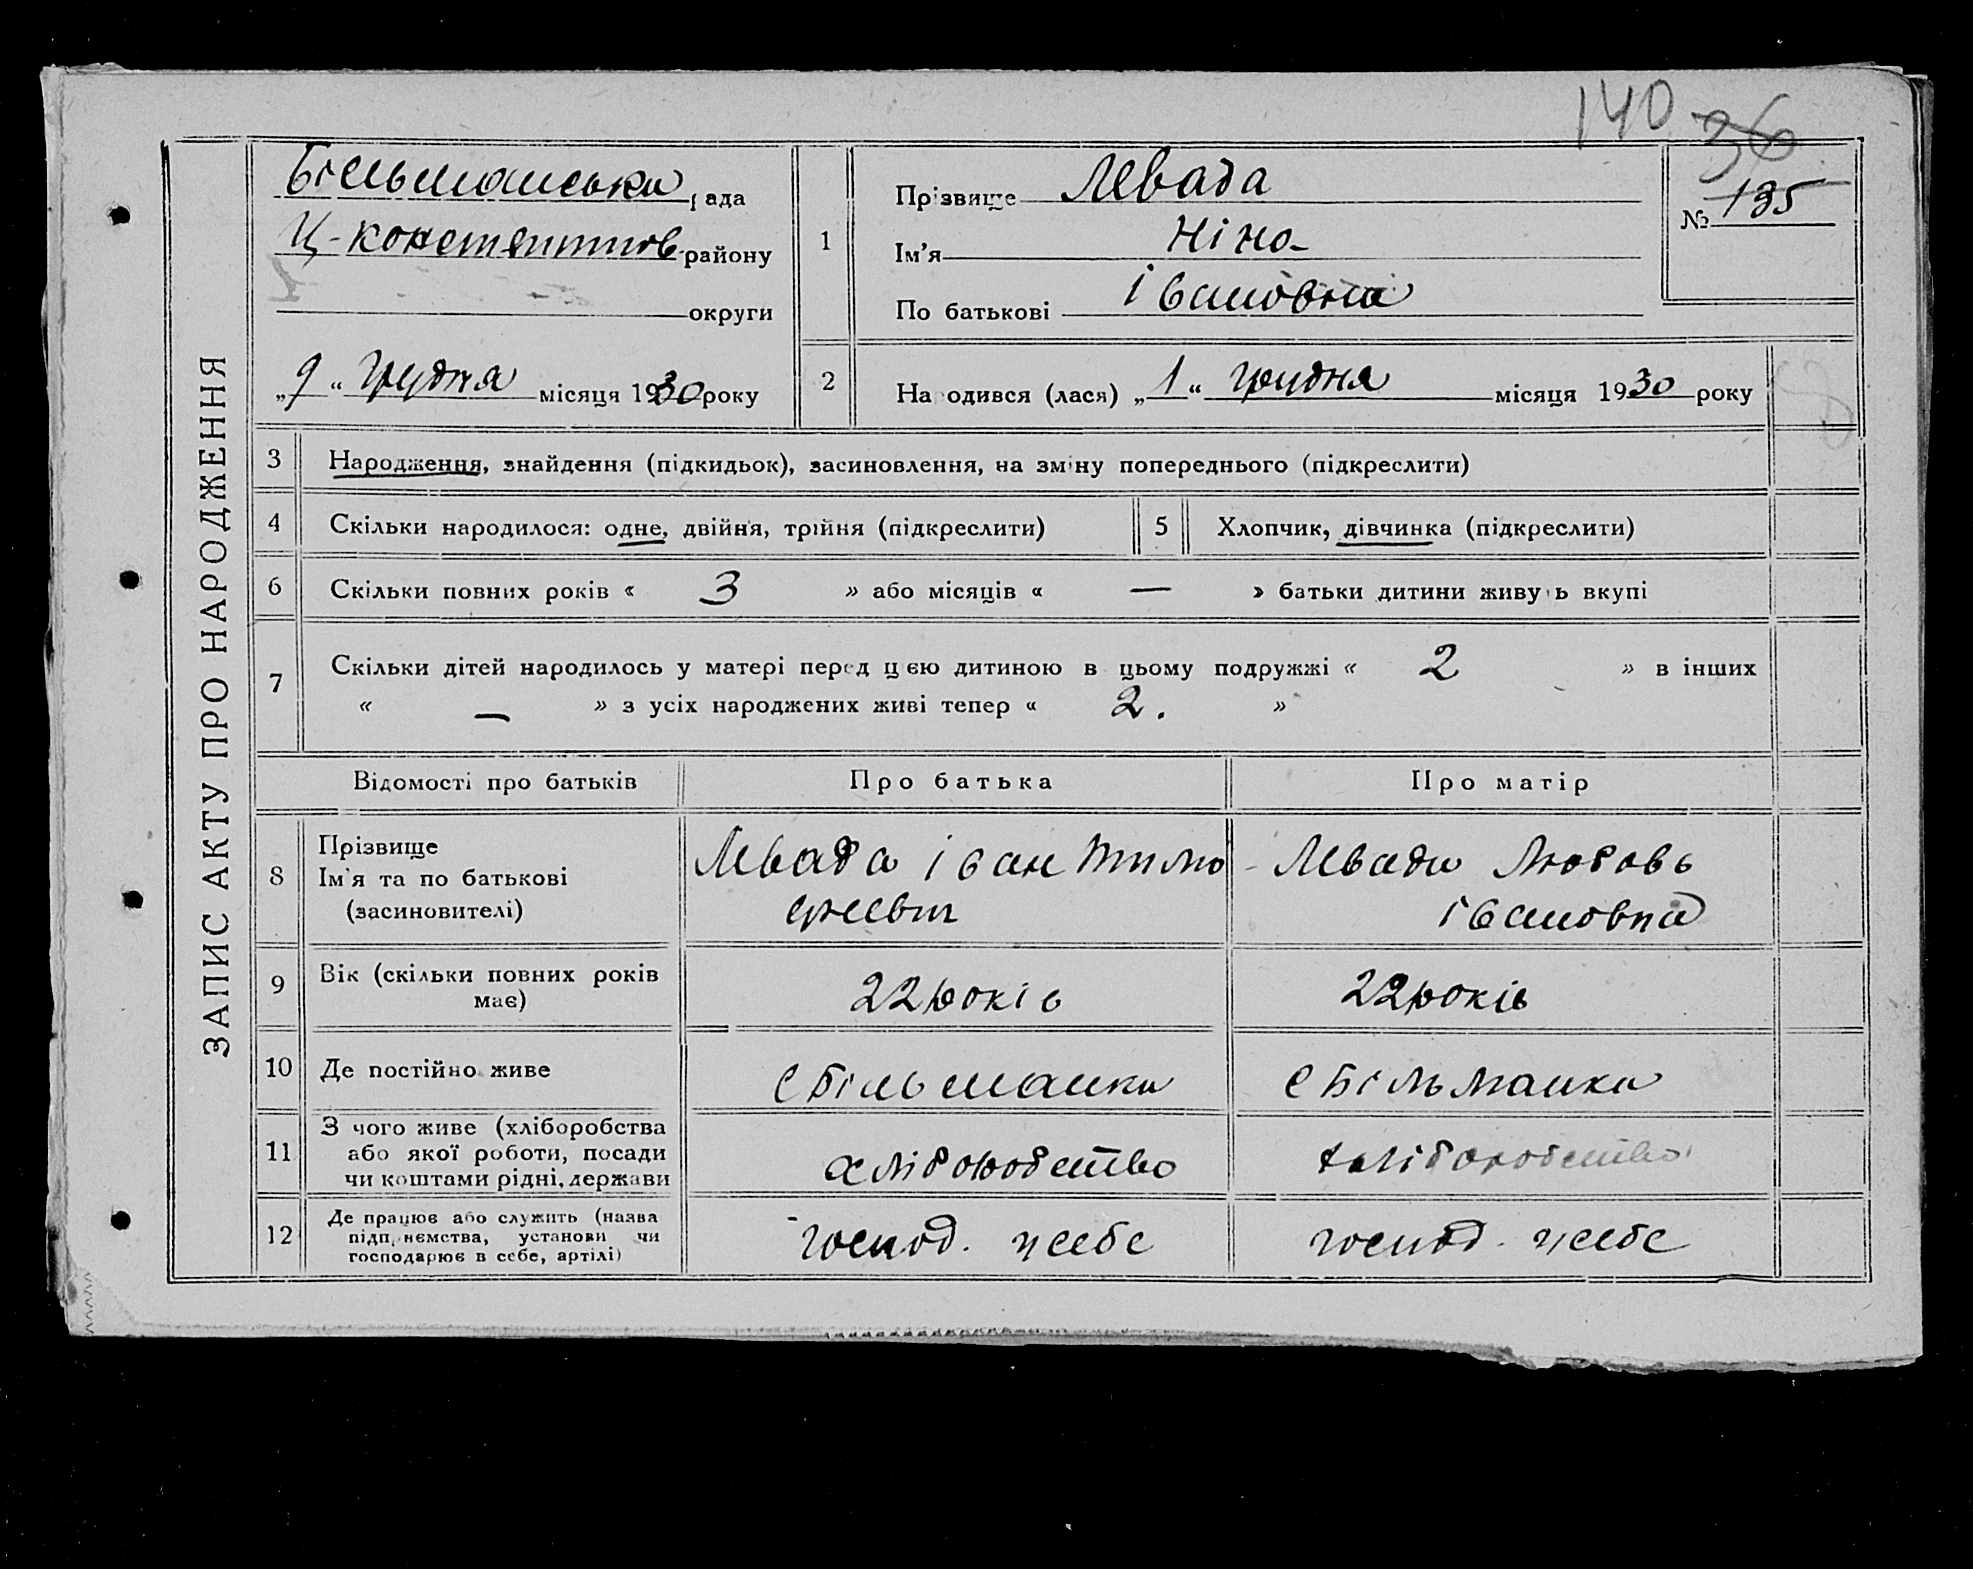 140 36
ЗАПИС АКТУ ПРО НАРОДЖЕННЯ
Більманська рада
Ц-Константинов району
округи
„9“ грудня місяця 1930 року
1
Прізвище Левада
Ім'я Ніна
По батькові Івановна
№ 135
2
Народився (лася) „1“ грудня місяця 1930 року
3 Народження, знайдення (підкидьок), засиновлення, на зміну попереднього (підкреслити)
4 Скільки народилося: одне, двійня, трійня (підкреслити) 5 Хлопчик, дівчинка (підкреслити)
6 Скільки повних років « 3 » або місяців « — » батьки дитини живуть вкупі
7 Скільки дітей народилось у матері перед цією дитиною в цьому подружжі « 2 » в інших
« — » з усіх народжених живі тепер « 2. »
Відомості про батьків Про батька Про матір
8
Прізвище
Ім'я та по батькові
(засиновителі)
Левада Іван Тимо
Левада Любовь
Івановна
9
Вік (скільки повних років
має)
22 років
22 років
10 Де постійно живе
с Більманка
с Більманка
11
З чого живе (хліборобства
або якої роботи, посади
чи коштами рідні, держави
хліборобство
хліборобство
12
Де працює або служить (назва
підприємства, установи чи
господарює в себе, артілі)
господ. у себе
господ. у себе